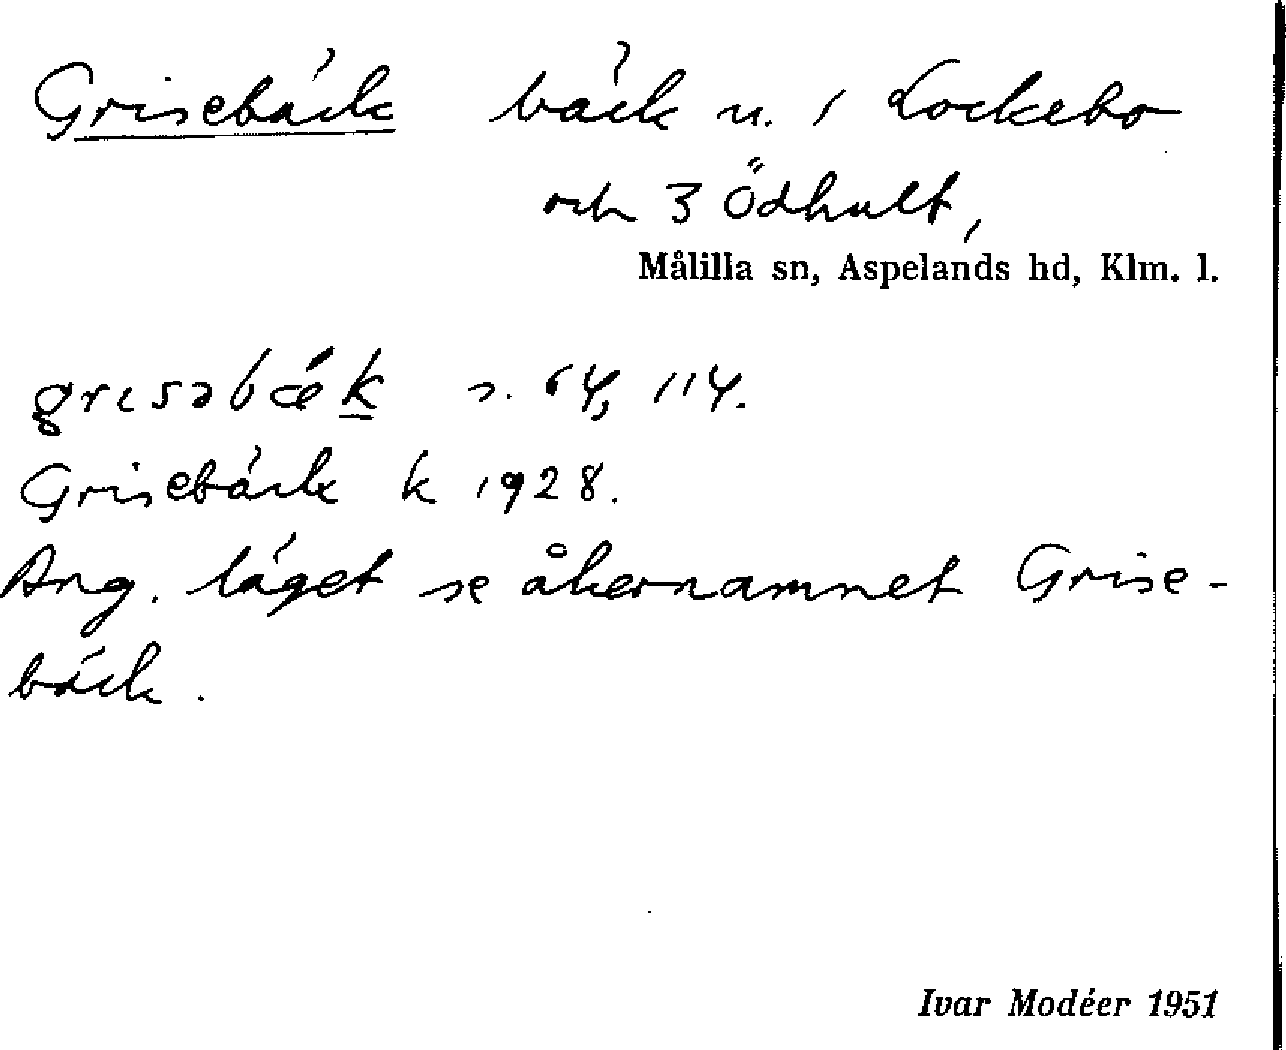 Grisebäck bäck u. 1 Lockebo
och 3 Ödhult,
Målilla sn, Aspelands hd, Klm. l.
grɩsəbǽk s. 64, 114.
Grisebäck k 1928.
Ang. läget se åkernamnet Grise-
bäck.
Ivar Modéer 1951